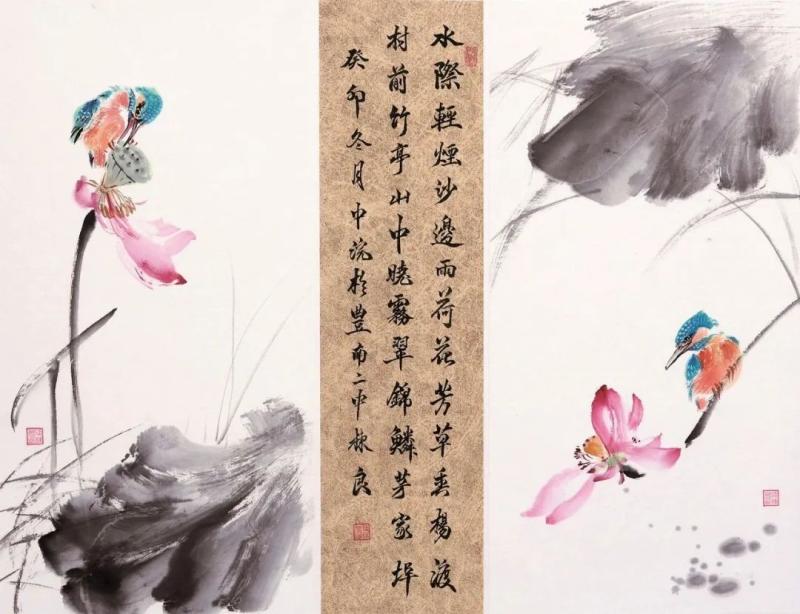 水際輕煙沙邊雨荷花芳草垂楊渡
村前竹亭山中曉霧翠錦鱗茅家坪
癸卯冬月中浣於豐南二中林良